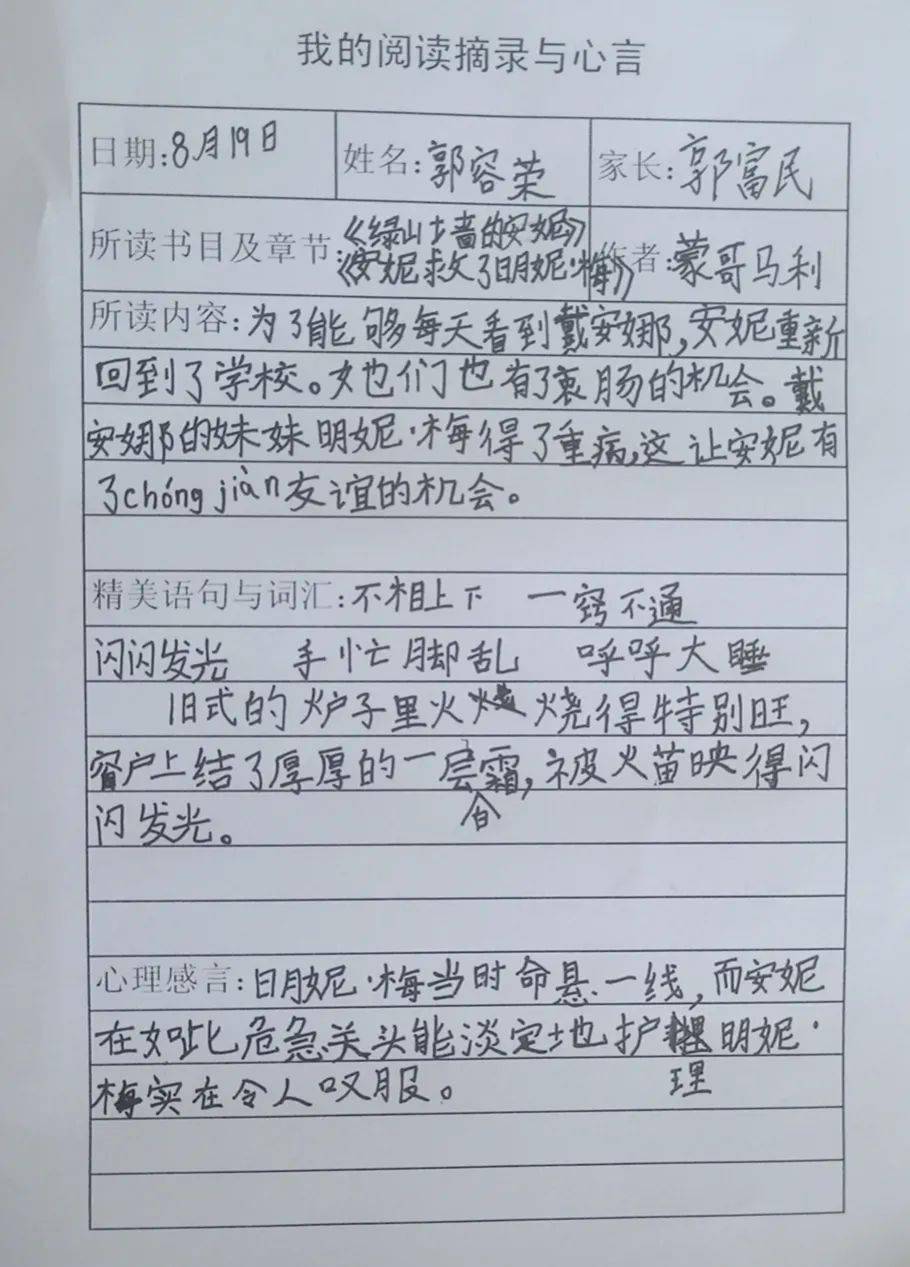 我的阅读摘录与心言
日期:8月19日 姓名:郭容荣 家长:郭富民
所读书目及章节:《绿山墙的安妮》《安妮救了明妮·梅》 作者:蒙哥马利
所读内容:为了能够每天看到戴安娜,安妮重新
回到了学校。她们也有了衷肠的机会。戴
安娜的妹妹明妮·梅得了重病,这让安妮有
了chóng jiàn友谊的机会。
精美语句与词汇:不相上下 一窍不通
闪闪发光 手忙脚乱 呼呼大睡
旧式的炉子里火燃烧得特别旺,
窗户上结了厚厚的一层白霜,被火苗映得闪
闪发光。
心理感言:明妮·梅当时命悬一线,而安妮
在如此危急关头能淡定地护理明妮·
梅实在令人叹服。